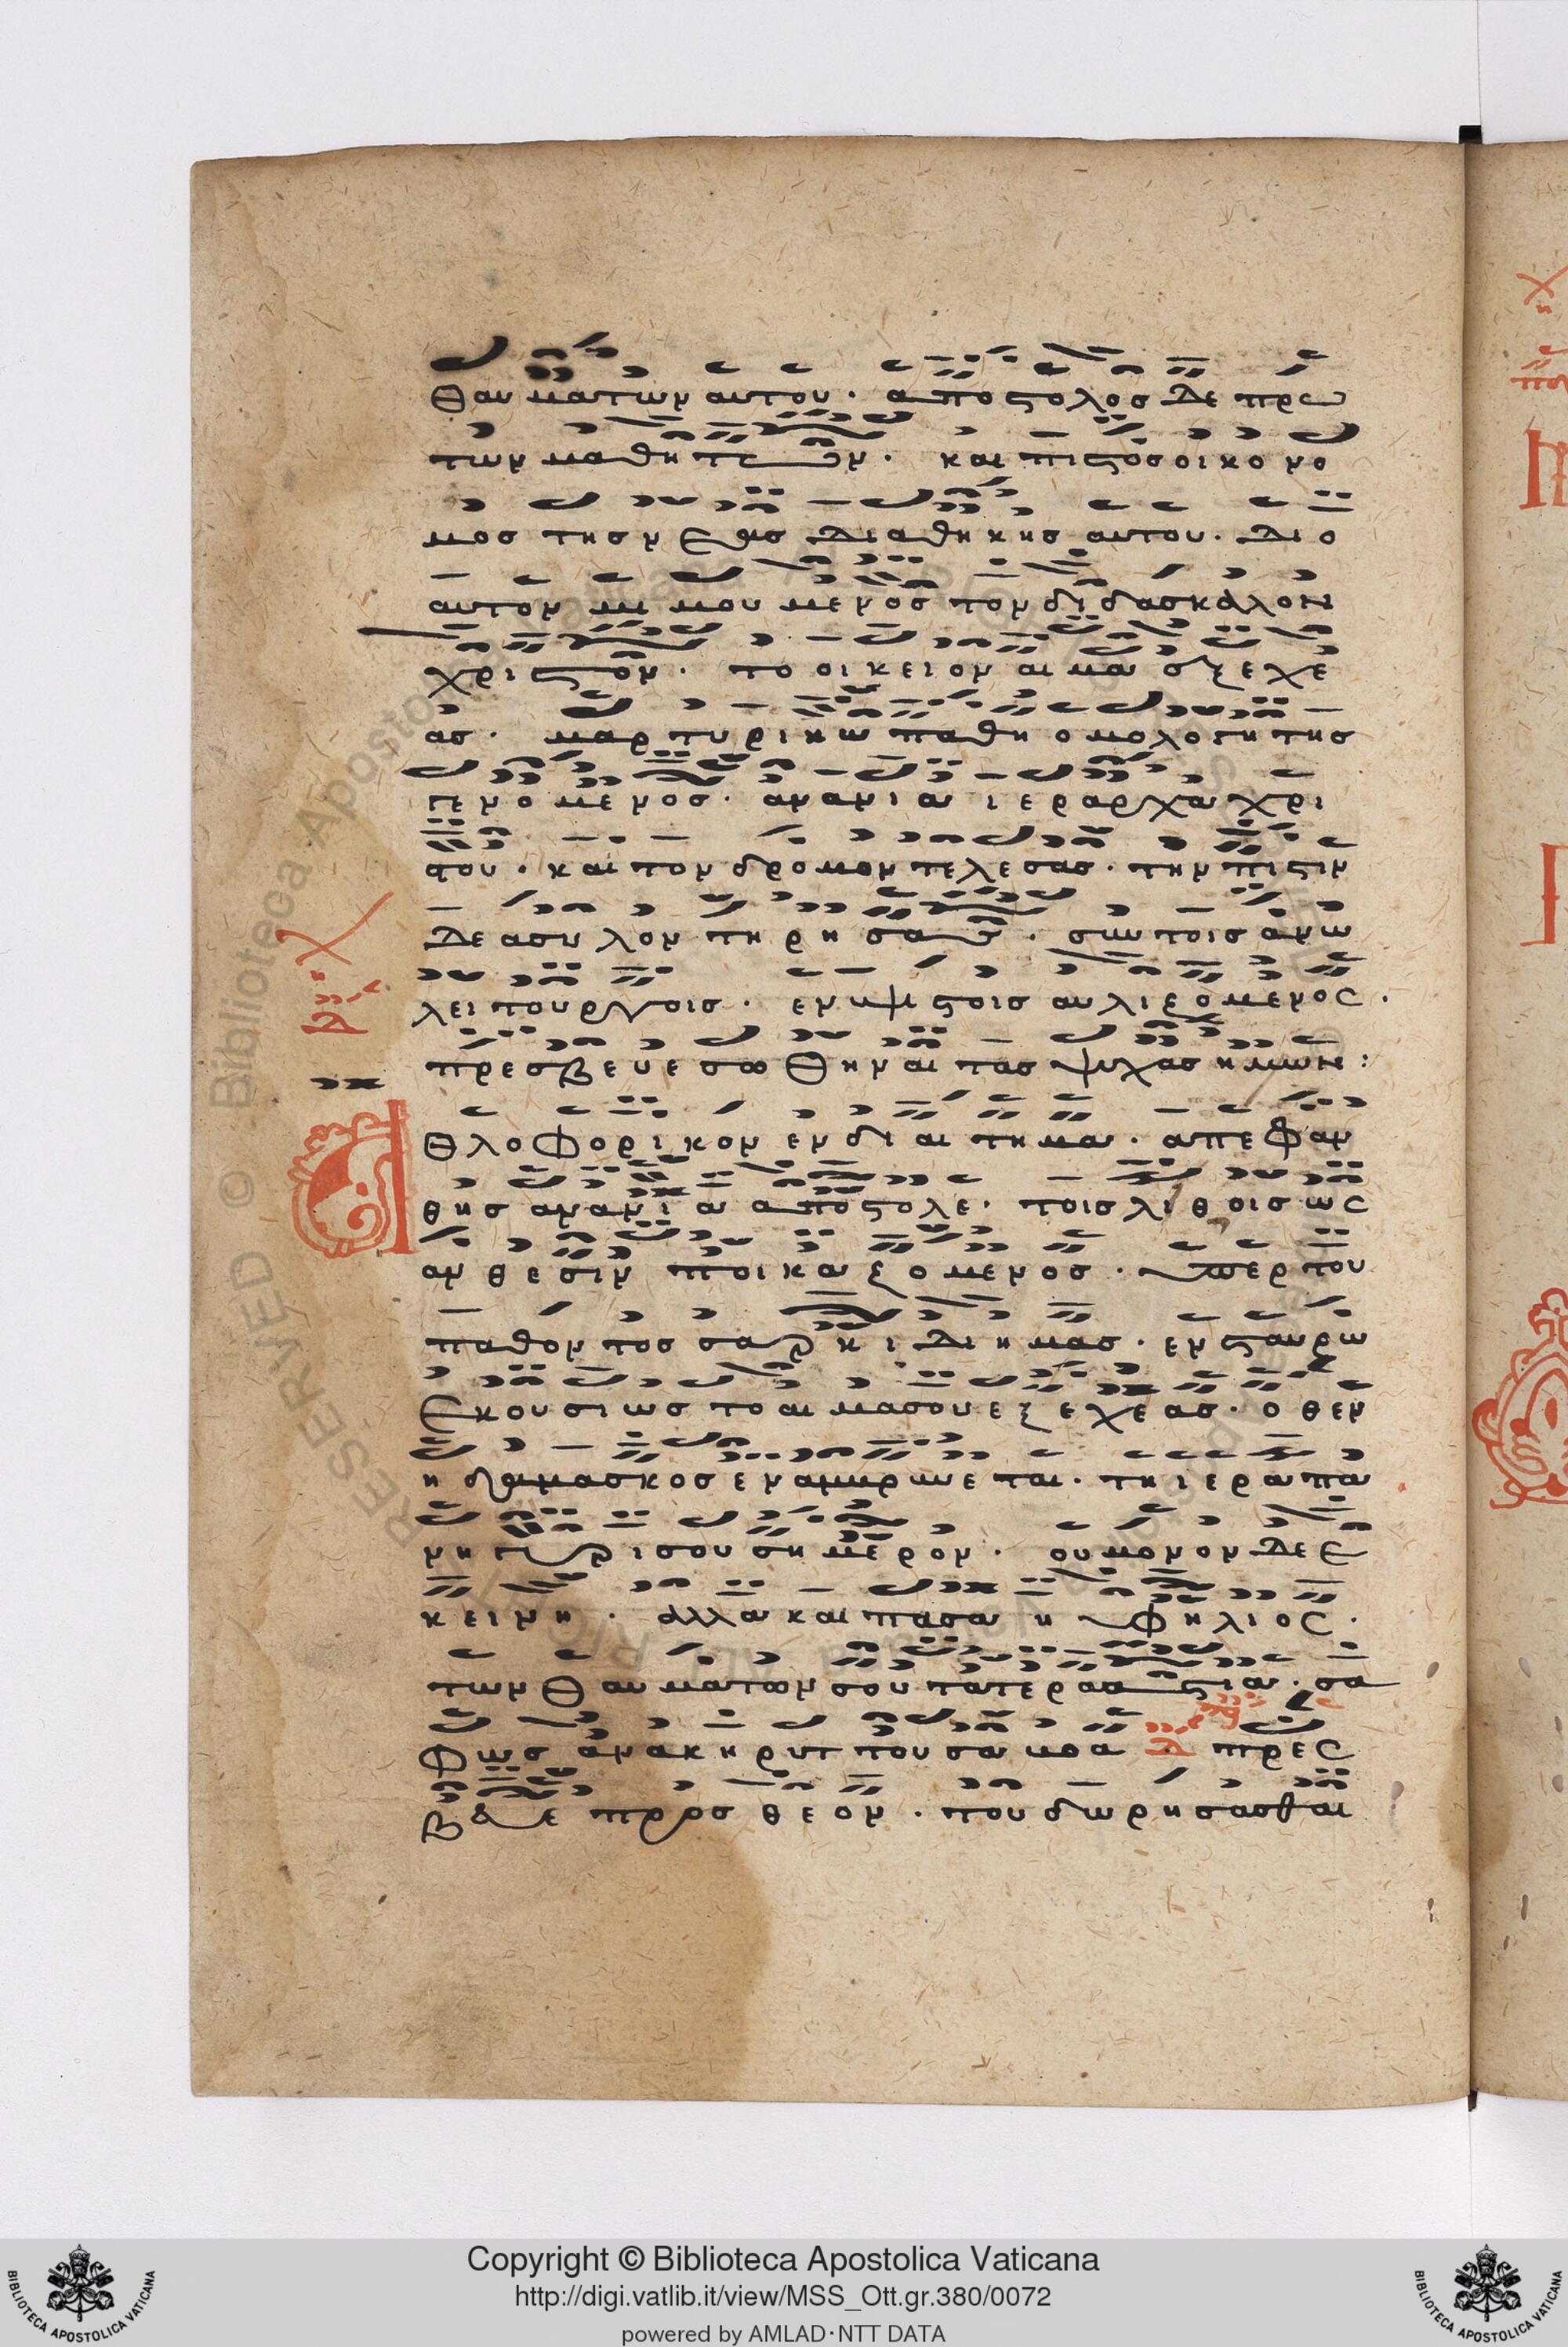 θαυματων αυτου · αποστολος δε πρω
των μαθητων · και πιστος οικονο
μος της νεας διαθηκης αυτου · διο
αυτον μιμουμενος τον διδασκαλον
χριστον · το οικειον αιμα εξεχε
ας · μαρτυρικω παθη ομολογητης
γενομενος · ανανια ιεραρχα χρι
στου · και τον δρομον τελεσας · την πιστιν
δε ασυλον τηρησας · συν τοις ανω
λειτουργοις · εν υψιστοις αυλιζομενος ·
πρεσβευε σωθηναι τας ψυχας ημων :
Α
θλοφορικον ενδιαιτημα · απεφαν
θης ανανια αποστολε · τοις λιθοις ως
ανθεσιν ποικαζομενος · υπερ του
παθοντος σαρκι δι ημας · εν σταυρω
εκουσιως το αιμα σου εξεχεας · οθεν
η δαμασκος εναμβρυνεται · τη ιερα πα
νηγυρι σου σημερον · ου μονον δε ε
κεινη · αλλα και πασα η υφηλιος ·
των θαυματων σου πατερ αξιαν · σα
φως ανακηρυττουσα βοα · πρεσ
βευε προς θεον · του δωρησασθαι
Copyright © Biblioteca Apostolica Vaticana
http://digi.vatlib.it/view/MSS_Ott.gr.380/0072
powered by AMLAD·NTT DATA